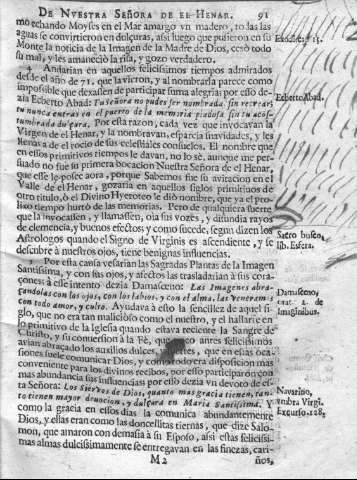 DE NVESTRA SEÑORA DE EL HENAR. 91
mo echando Moyses en el Mar amargo vn madero, todas las
aguas se convirtieron en dulçuras, assi luego que pusieron en su
Monte la noticia de la Imagen de la Madre de Dios, cesò todo
su mal, y les amaneciò la risa, y gozo verdadero.
Andarian en aquellos felicissimos tiempos admirados
desde el año de 71. que la vieron, y al nombrarla parece como
impossible que dexassen de participar suma alegria: por esso de-
zia Ecberto Abad: Tu señora no pudes ser nombrada, sin recrear;
tu nunca entras en el puerto de la memoria piadosa sin tu acos-
tumbrada dulçura. Por esta razon, cada vez que invocavan la
Virgen de el Henar, y la nombravan, esparcia suavidades, y les
llenava de el rocio de sus celestiales consuelos. El nombre que
en essos primitivos tiempos le davan, no lo sè, aunque me per-
suado no fue su primera vocacion Nuestra Señora de el Henar,
que esse le posee aora, porque Sabemos fue su avitacion en el
Valle de el Henar, gozaria en aquellos siglos primitivos de
otro titulo, ò el Divino Hyeroteo le diò nombre, que ya el pro-
lixo tiempo hurtò de las memorias. Pero de qualquiera suerte
que la invocassen, y llamassen, oìa sus vozes, y difundia rayos
de clemencia, y buenos efectos y como sucede, segun dizen los
Astrologos quando el Signo de Virginis es ascendiente, y se
descubre à nuestros ojos, tiene benignas influencias.
Por esta causa vesarian las Sagradas Plantas de la Imagen
Santissima, y con sus ojos, y afectos las trasladarian à sus cora-
çones: à este intento dezia Damasceno: Las Imagenes abra-
çandolas con los ojos, con los labios, y con el alma, las veneramos
con todo amor, y culto. Ayudava à esto la sencillez de aquel si-
glo, que no era tan malicioso como el nuestro, y el hallarse en
lo primitivo de la Iglesia quando estava reciente la Sangre de
Christo, y su conversion à la Fè, que antes felicissimos
avian abraçado los auxilios dulces, que en essas oca-
siones suele comunicar Dios, y como dorera disposicion mas
conveniente para los divinos recibos, por esso participarian con
mas abundancia sus influencias: por esso dezia vn devoto de es-
ta Señora: Los Siervos de Dios, quanto mas gracia tienen, tan-
to tienen mayor devocion, y dulçura en Maria Santissima. Y
como la gracia en essos dias la comunica abundantemente
Dios, y ellas eran como las doncellitas tiernas, que dize Salo-
mon, que amaron con demasia à su Esposo, assi estas felicissi-
mas almas dulcissimamente se entregavan en las finezas, cari-
M2 ños,
Ecberto Abad.
Sacro busco,
lib. Esfera.
Damasceno,
trat. 2. de
Imaginibus.
Navarino,
vmbra Virgi.
Excurso. 128.